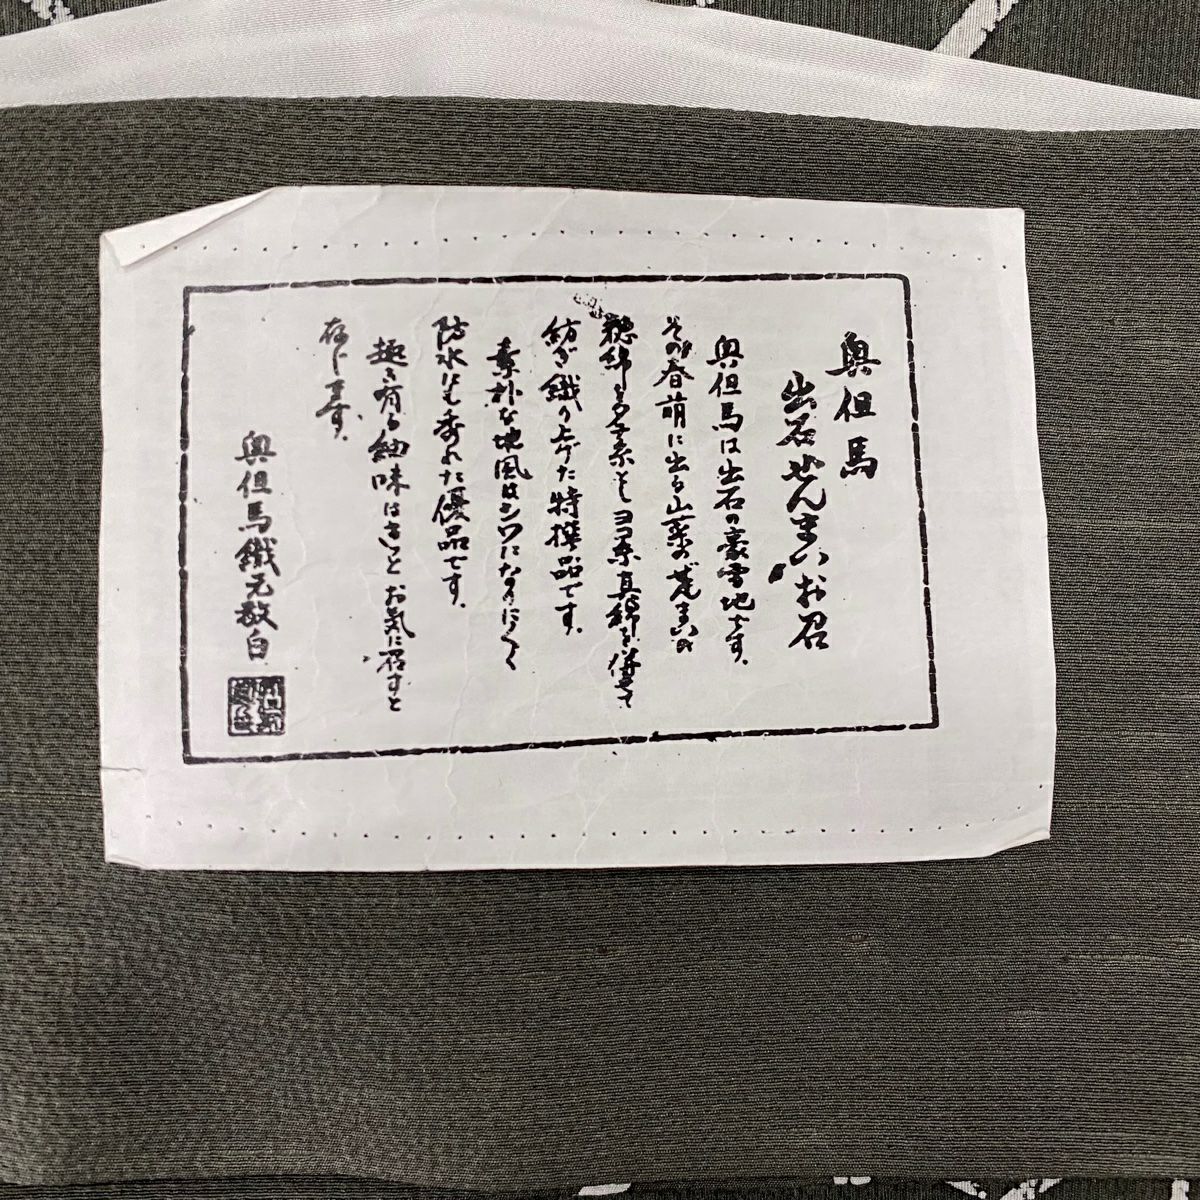 奥但馬
出石ぜんまいお召
奥但馬は出石の豪雪地です。
その春萌に出る山菜のぜんまいの
穂綿をタテ糸としヨコ糸真綿を併せて
紡ぎ織り上げた特撰品です。
素朴な地風はシワになりにくく
防水にも秀れた優品です。
趣き有る紬味はきっとお気に召すと
存じます。
奥但馬織元敬白